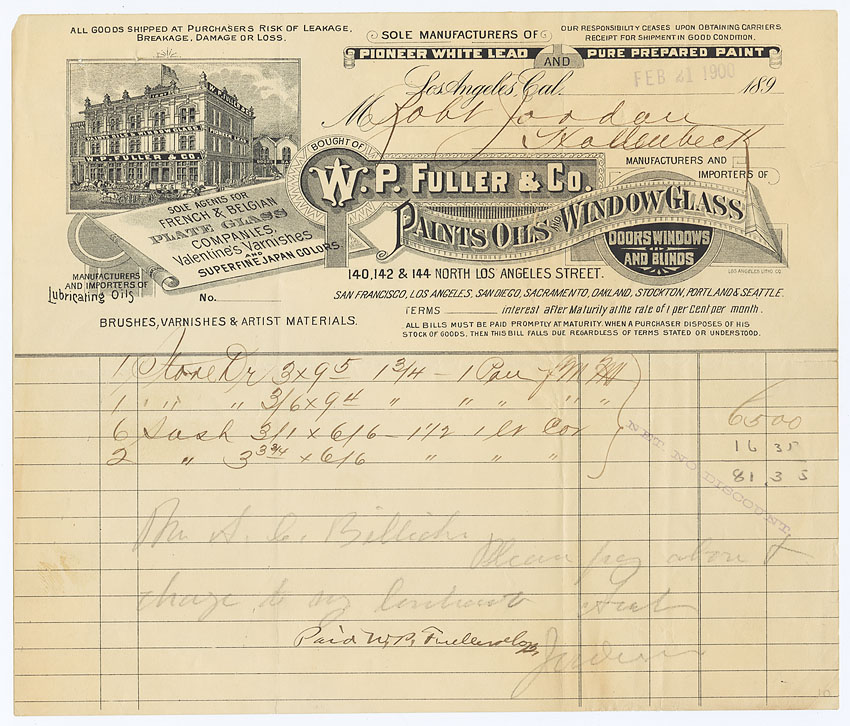 ALL GOODS SHIPPED AT PURCHASERS RISK OF LEAKAGE,
BREAKAGE, DAMAGE OR LOSS.
SOLE MANUFACTURERS OF
PIONEER WHITE LEAD AND PURE PREPARED PAINT
OUR RESPONSIBILITY CEASES UPON OBTAINING CARRIERS
RECEIPT FOR SHIPMENT IN GOOD CONDITION.
Los Angeles, Cal. 189
FEB 21 1900
M Robt Jordan
Hollenbeck
BOUGHT OF
W. P. FULLER & CO.
MANUFACTURERS AND
IMPORTERS OF
PAINTS OILS AND WINDOW GLASS
DOORS WINDOWS
AND BLINDS
LOS ANGELES LITHO CO.
W. P. FULLER & CO
SOLE AGENTS FOR
FRENCH & BELGIAN
PLATE GLASS
COMPANIES,
Valentine's Varnishes
AND
SUPERFINE JAPAN COLORS.
140, 142 & 144 NORTH LOS ANGELES STREET.
MANUFACTURERS
AND IMPORTERS OF
Lubricating Oils
No.
SAN FRANCISCO, LOS ANGELES, SAN DIEGO, SACRAMENTO, OAKLAND, STOCKTON, PORTLAND & SEATTLE.
TERMS interest after Maturity at the rate of 1 per Cent per month.
BRUSHES, VARNISHES & ARTIST MATERIALS.
ALL BILLS MUST BE PAID PROMPTLY AT MATURITY. WHEN A PURCHASER DISPOSES OF HIS
STOCK OF GOODS, THEN THIS BILL FALLS DUE REGARDLESS OF TERMS STATED OR UNDERSTOOD.
1 Store Dr 3 x 9 5 1 3/4 - 1
1 " " 3/6 x 9 4 " " " " "
6 Sash 3/1 x 6/6 - 1 1/2 1 lt
2 " 3 3 3/4 x 6/6 " " "
6500
16 35
81.35
NET. NO DISCOUNT
Mr A. C. Bilicke
Please pay above &
charge to my Contract
Jordan
Paid W. P. Fuller & Co.